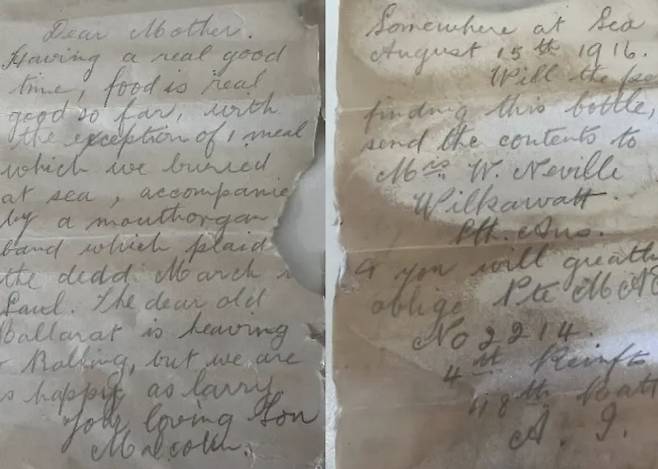 Dear Mother.
Having a real good
time, food is real
good so far, with
the exception of 1 meal
which we buried
at sea, accompanie
by a mouthorgan
band which plaid
the dedd March
Saul. The dear old
Ballarat is heaving
& Rolling, but we are
as happy as larry
Your loving Son
Malcolm.
Somewhere at Sea
August 15th 1916.
Will the
finding this bottle,
send the contents to
Mrs W. Neville
Wilkawatt
Sth. Aus.
& you will greatly
oblige Pte M
No 2214.
4th Reinfts
48th Batt
A. I.